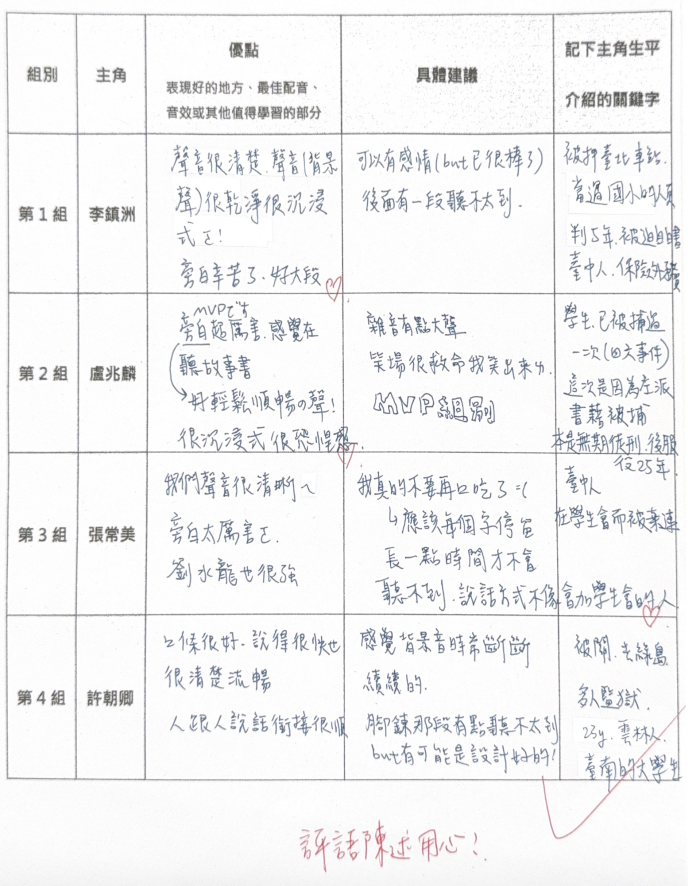 組別
主角
優點
表現好的地方、最佳配音、
音效或其他值得學習的部分
具體建議
記下主角生平
介紹的關鍵字
第1組
李鎮洲
聲音很清楚.聲音(背景
聲)很乾淨很沉浸
式ㄛ!
旁白辛苦了、好大段
可以有感情(but已很棒了)
後面有一段聽不太到.
被押臺北車站.
當過國小的人員
判5年.被迫自書
臺中人.保險外務
第2組
盧兆麟
MVPです
旁白超厲害.感覺在
聽故事書
→好輕鬆順暢の聲!
很沉浸式很恐悍
雜音有點大聲
笑場很救命我笑出來ㄌ.
MVP組別
學生.已被捕過
一次(四六事件)
這次是因為左派
書籍被捕
本是無期徒刑.後服
役25年.
第3組
張常美
我們聲音很清晰~
旁白太厲害ㄛ.
劉水龍也很強
我真的不要再口吃了=(
↳應該每個字停留
長一點時間才不會
聽不到.說話方式不像會加學生會的人
臺中人
在學生會而被牽連
第4組
許朝卿
口條很好.說得很快也
很清楚流暢
人跟人說話銜接很順
感覺背景音時常斷斷
續續的.
腳鍊那段有點聽不太到
but有可能是設計好的!
被關.去綠島
多人監獄.
23y.雲林人.
臺南的大學生
評語陳述用心!